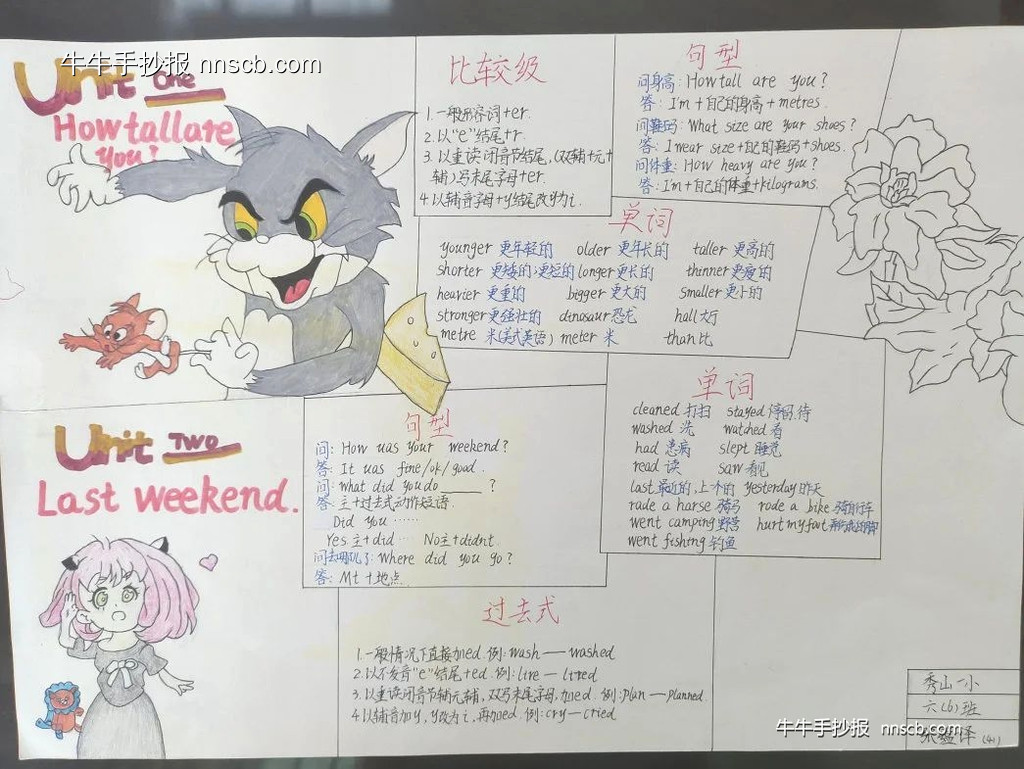 牛牛手抄报 nnscb.com
Unit One
How tall are
you?
比较级
1.一般形容词+er.
2.以"e"结尾+r.
3.以重读闭音节结尾,(双辅+元+
辅)写末尾字母+er.
4.以辅音字母+y结尾改y为i.
句型
问身高: How tall are you?
答: I'm+自己的身高+metres.
问鞋码: What size are your shoes?
答: I wear size+自己的鞋码+shoes.
问体重: How heavy are you?
答: I'm+自己的体重+kilograms.
单词
younger 更年轻的 older 更年长的 taller 更高的
shorter 更矮的;更短的 longer 更长的 thinner 更瘦的
heavier 更重的 bigger 更大的 smaller 更小的
stronger 更强壮的 dinosaur 恐龙 hall 大厅
metre 米(美式英语) meter 米 than 比
Unit Two
Last weekend.
句型
问: How was your weekend?
答: It was fine/ok/good.
问: what did you do ____ ?
答: 主+过去式动作短语.
Did you ……
Yes 主+did… No主+didnt.
问去哪儿了: Where did you go?
答: Mt +地点.
单词
cleaned 打扫 stayed 停留,待
washed 洗 watched 看
had 患病 slept 睡觉
read 读 saw 看见
last 最近的,上个的 yesterday 昨天
rade a harse 骑马 rode a bike 骑自行车
went camping 野营 hurt my foot
went fishing 钓鱼
过去式
1.一般情况下直接加ed.例: wash — washed
2.以不发音"e"结尾+ed.例: lire — lired
3.以重读闭音节辅元辅,双写末尾字母,加ed.例: plan — planned.
4.以辅音加y,y改为i,再加ed.例: cry — cried
秀山一小
六(6)班
牛牛手抄报 nnscb.com
(41)